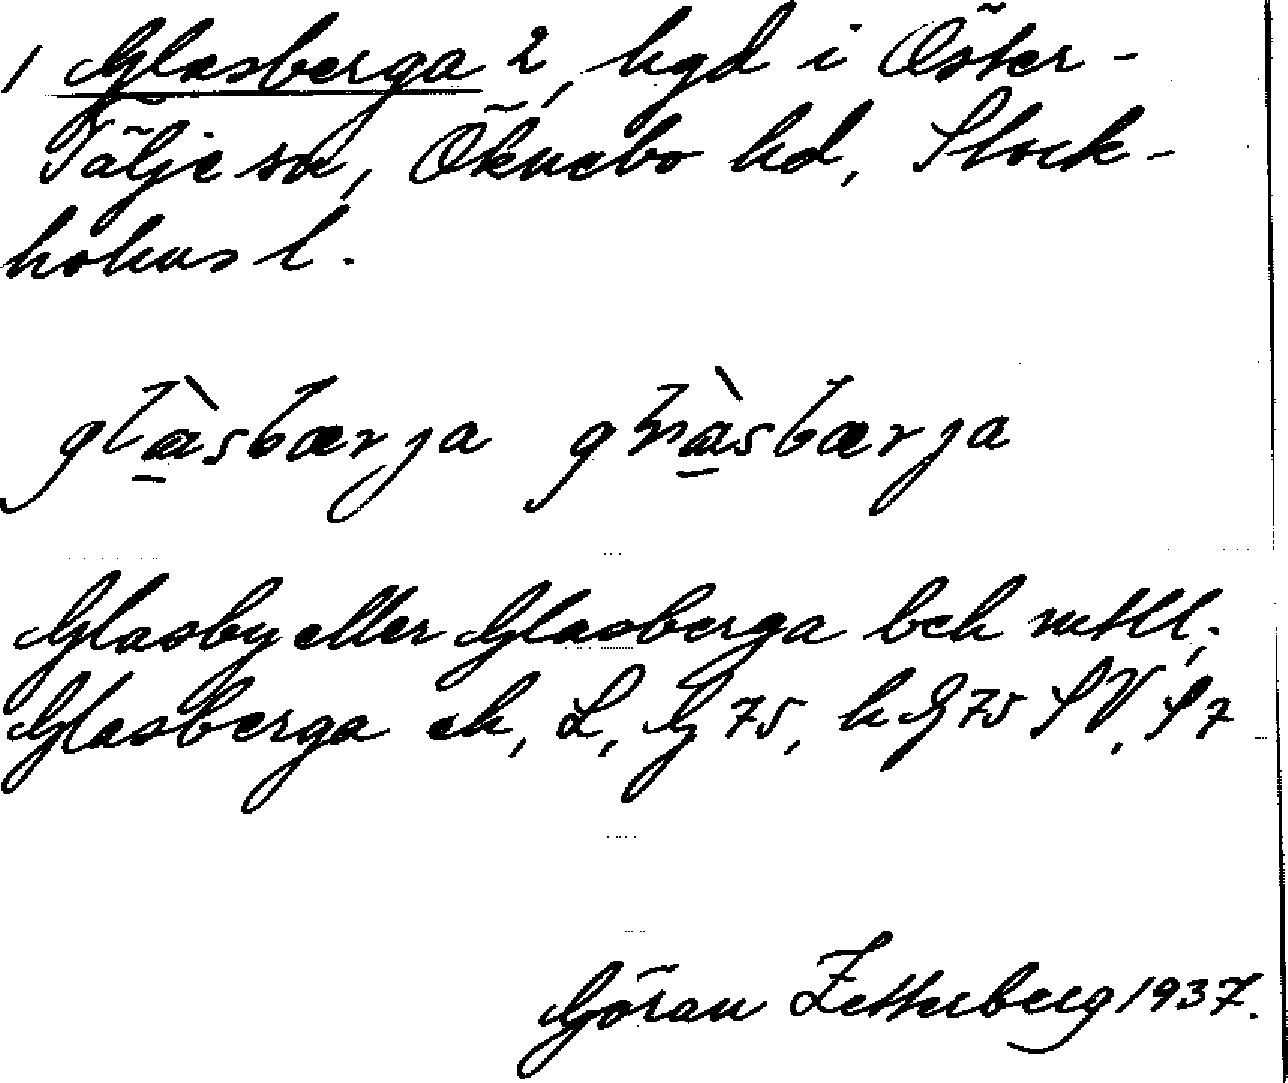 1 Glasberga 2, hgd i Öster-
Tälje sn, Öknebo hd, Stock-
holms l.
glàsbærja ghàsbærja
Glasby eller Glasberga beh mtll;
Glasberga ek, L, G 75, h G 75 SV, S 7
Göran Zetterberg 1937.